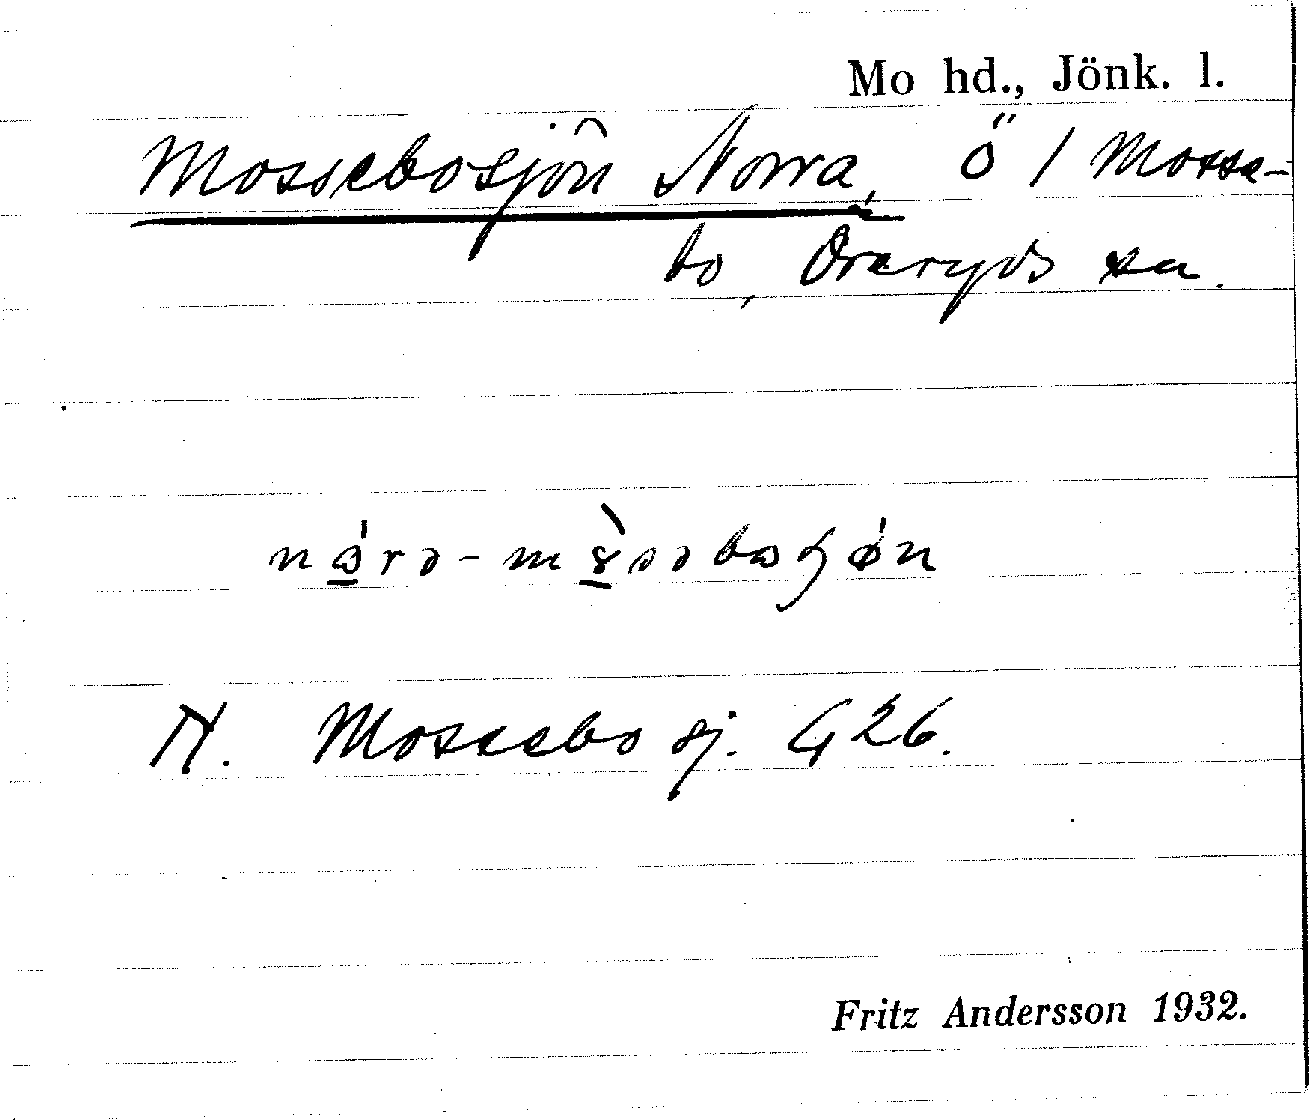 Mo hd., Jönk. l.
Mossebosjön Norra, ö / Mosse-
bo, Öreryds sn.
N. Mossebo sj. G 26.
Fritz Andersson 1932.